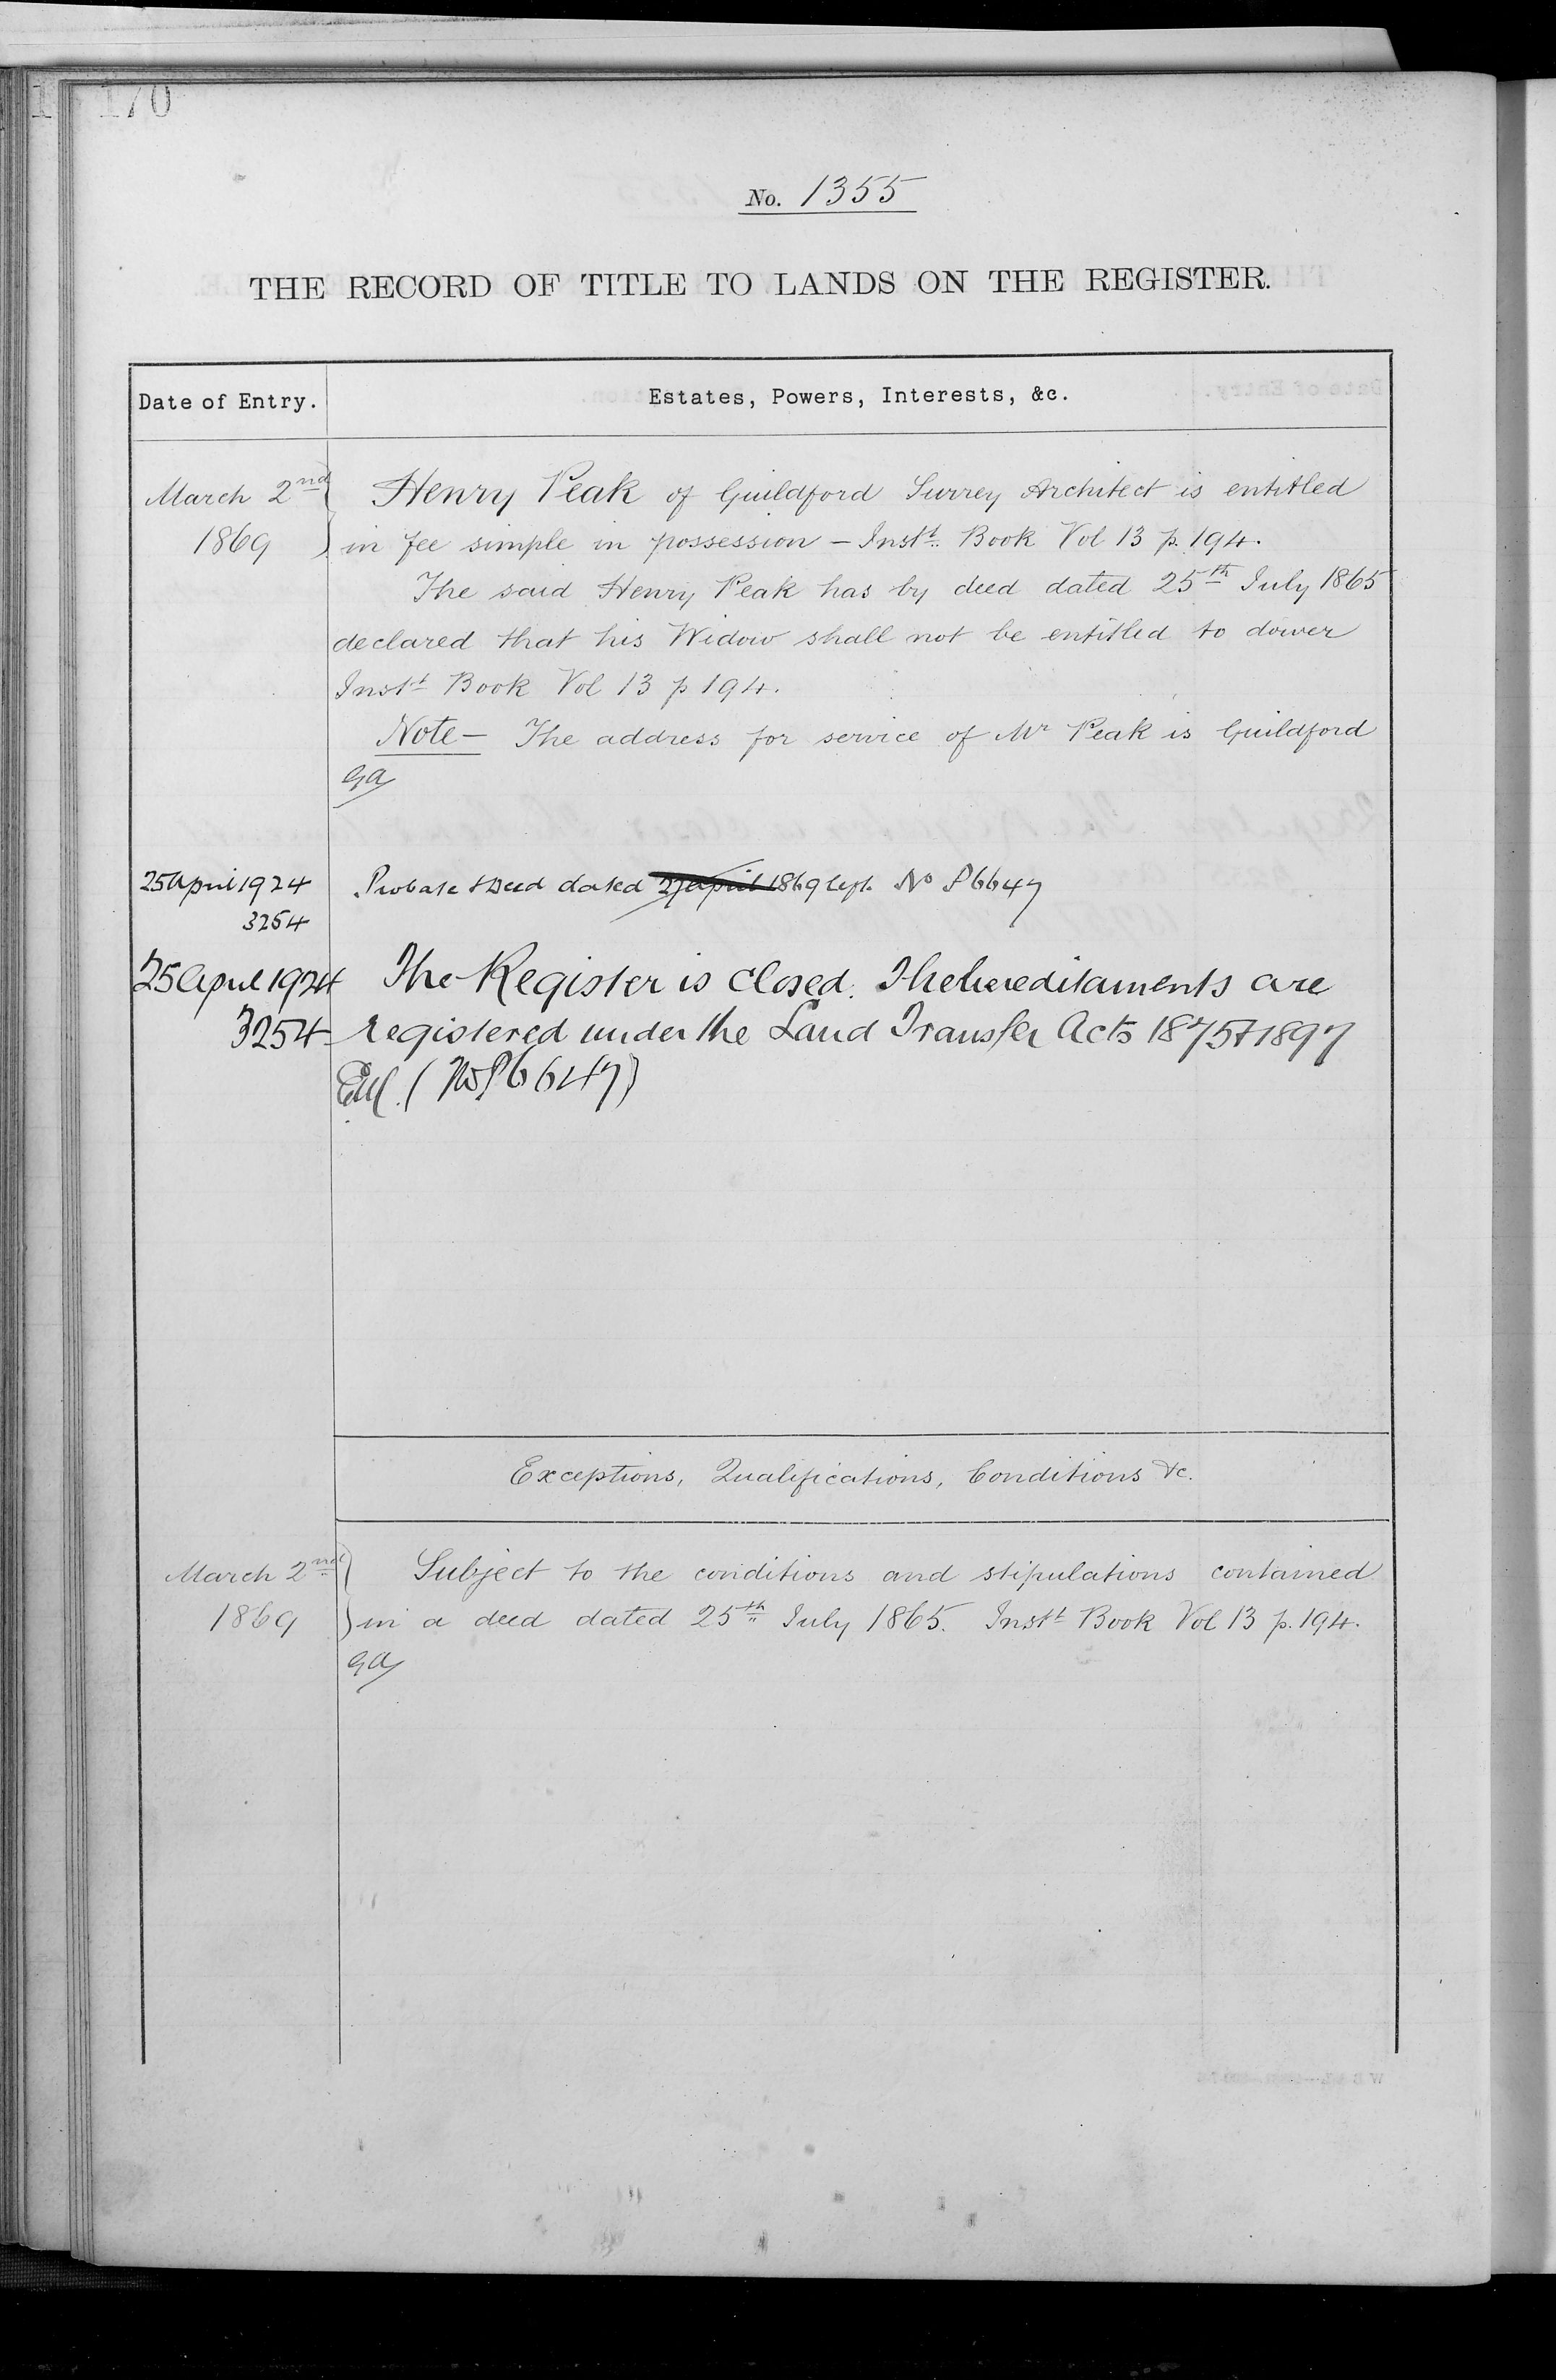 170
No. 1355
THE RECORD OF TITLE TO LANDS ON THE REGISTER.
Date of Entry. Estates, Powers, Interests, &c.
March 2nd Henry Peak of Guildford Surrey Architect is entitled
1869 in fee simple in possession – Instt. Book Vol 13 p. 194.
The said Henry Peak has by deed dated 25th July 1865
declared that his Widow shall not be entitled to dower
Instt Book Vol 13 p 194.
Note – The address for service of Mr Peak is Guildford
GA
25 April 1924 Probate & Deed dated 27 April 1869 No P6647
3254
25 April 1924 The Register is closed. The hereditaments are
3254 registered under the Land Transfer Acts 1875 & 1897
(No P6647)
Exceptions, Qualifications, Conditions &c.
March 2nd Subject to the conditions and stipulations contained
1869 in a deed dated 25th July 1865. Instt Book Vol 13 p. 194.
GA